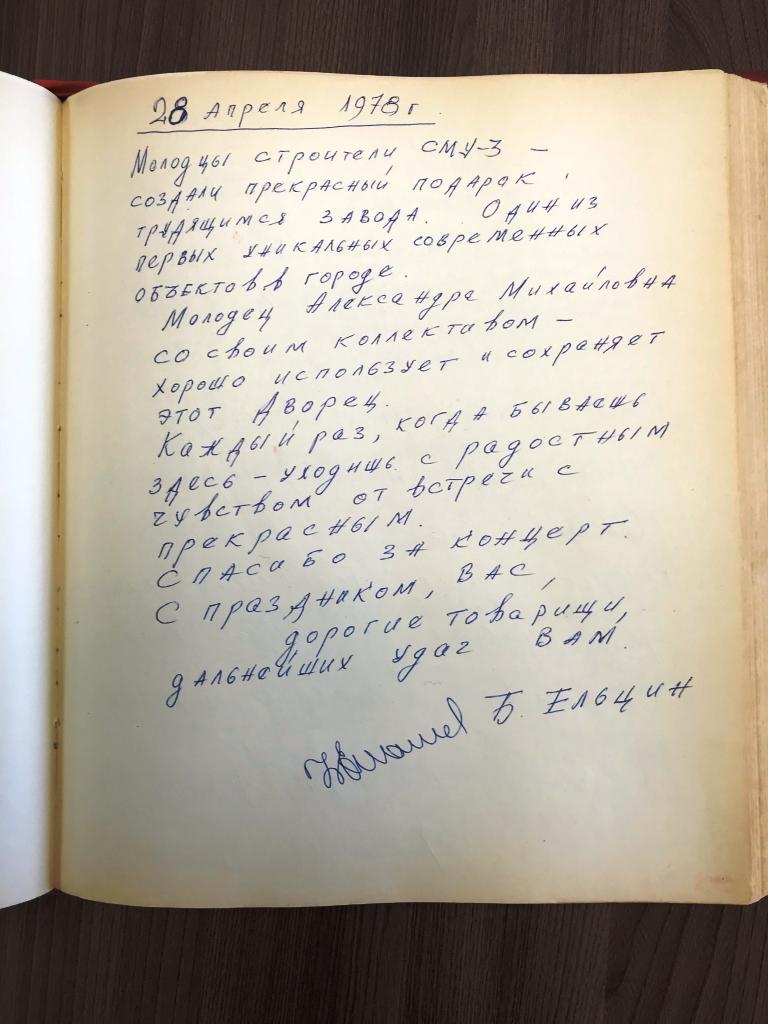 28 апреля 1978 г.
Молодцы строители СМУ-3 –
создали прекрасный подарок
трудящимся завода. Один из
первых уникальных современных
объектов в городе.
Молодец Александра Михайловна
со своим коллективом –
хорошо использует и сохраняет
этот Дворец.
Каждый раз, когда бываешь
здесь – уходишь с радостным
чувством от встречи с
прекрасным.
Спасибо за концерт.
С праздником, Вас,
дорогие товарищи,
дальнейших удач Вам.
Б. Ельцин